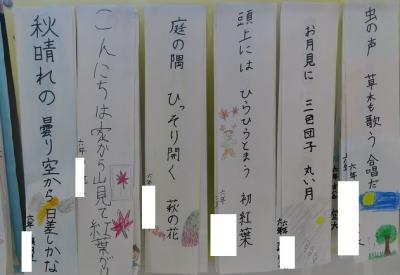 虫の声 草木も歌う 合唱だ
六年
お月見に 三色団子 丸い月
六年
頭上には ひらひらとまう 初紅葉
六年
庭の隅 ひっそり開く 萩の花
六年
こんにちは家から山見て紅葉がり
六年
秋晴れの 曇り空から 日差しかな
六年